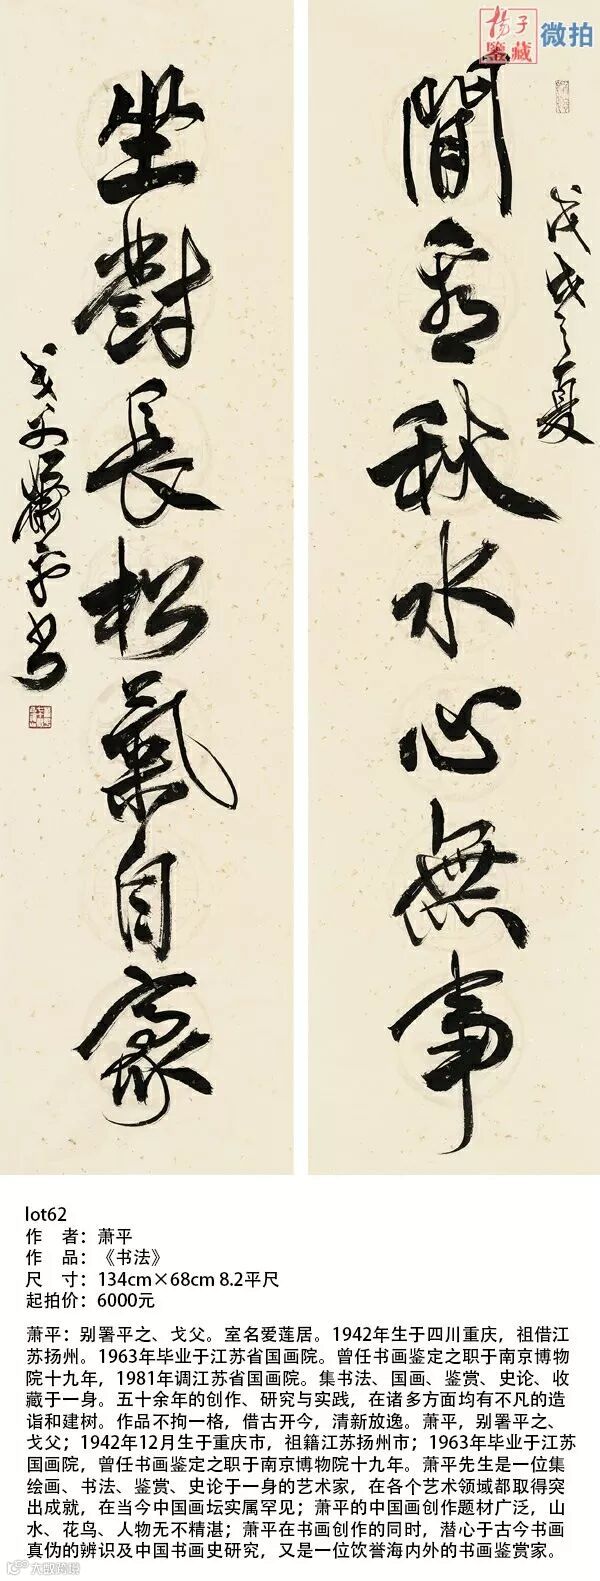 扬子
鉴藏
微拍
閒看秋水心無事
戊戌之夏
坐對長松氣自豪
戈父蕭平书
lot62
作 者：萧平
作 品：《书法》
尺 寸：134cm×68cm 8.2平尺
起拍价：6000元
萧平：别署平之、戈父。室名爱莲居。1942年生于四川重庆，祖借江
苏扬州。1963年毕业于江苏省国画院。曾任书画鉴定之职于南京博物
院十九年，1981年调江苏省国画院。集书法、国画、鉴赏、史论、收
藏于一身。五十余年的创作、研究与实践，在诸多方面均有不凡的造
诣和建树。作品不拘一格，借古开今，清新放逸。萧平，别署平之、
戈父；1942年12月生于重庆市，祖籍江苏扬州市；1963年毕业于江苏
国画院，曾任书画鉴定之职于南京博物院十九年。萧平先生是一位集
绘画、书法、鉴赏、史论于一身的艺术家，在各个艺术领域都取得突
出成就，在当今中国画坛实属罕见；萧平的中国画创作题材广泛，山
水、花鸟、人物无不精湛；萧平在书画创作的同时，潜心于古今书画
真伪的辨识及中国书画史研究，又是一位饮誉海内外的书画鉴赏家。
大欧跨境